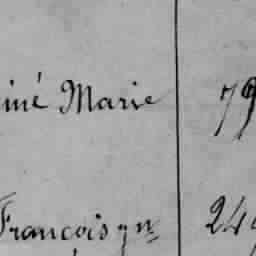 iné Marie 79
François yn 249